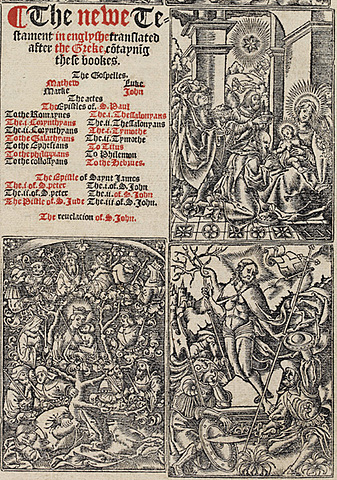 The newe Te-
stament in englyshe translated
after the Greke, cōtaynig
these bookes.
The Gospelles.
Mathew Luke
Marke John
The actes
The Epistles of S. Paul
To the Romaynes The .i. Thessalonyans
The .i. Corynthyans The .ii. Thessalonyans
The .ii. Corynthyans The .i. Tymothe
To the Galathyans The .ii. Tymothe
To the Ephesians To Titus
To the philippians To Philemon
To the colossyans To the Hebrues.
The Epistle of Saynt James
The .i. of .S. peter The .i. of .S. John
The .ii. of .S. peter The .ii. of .S. John
The Pistle of .S. Jude The .iii. of .S. John.
The reuelation of .S. John.